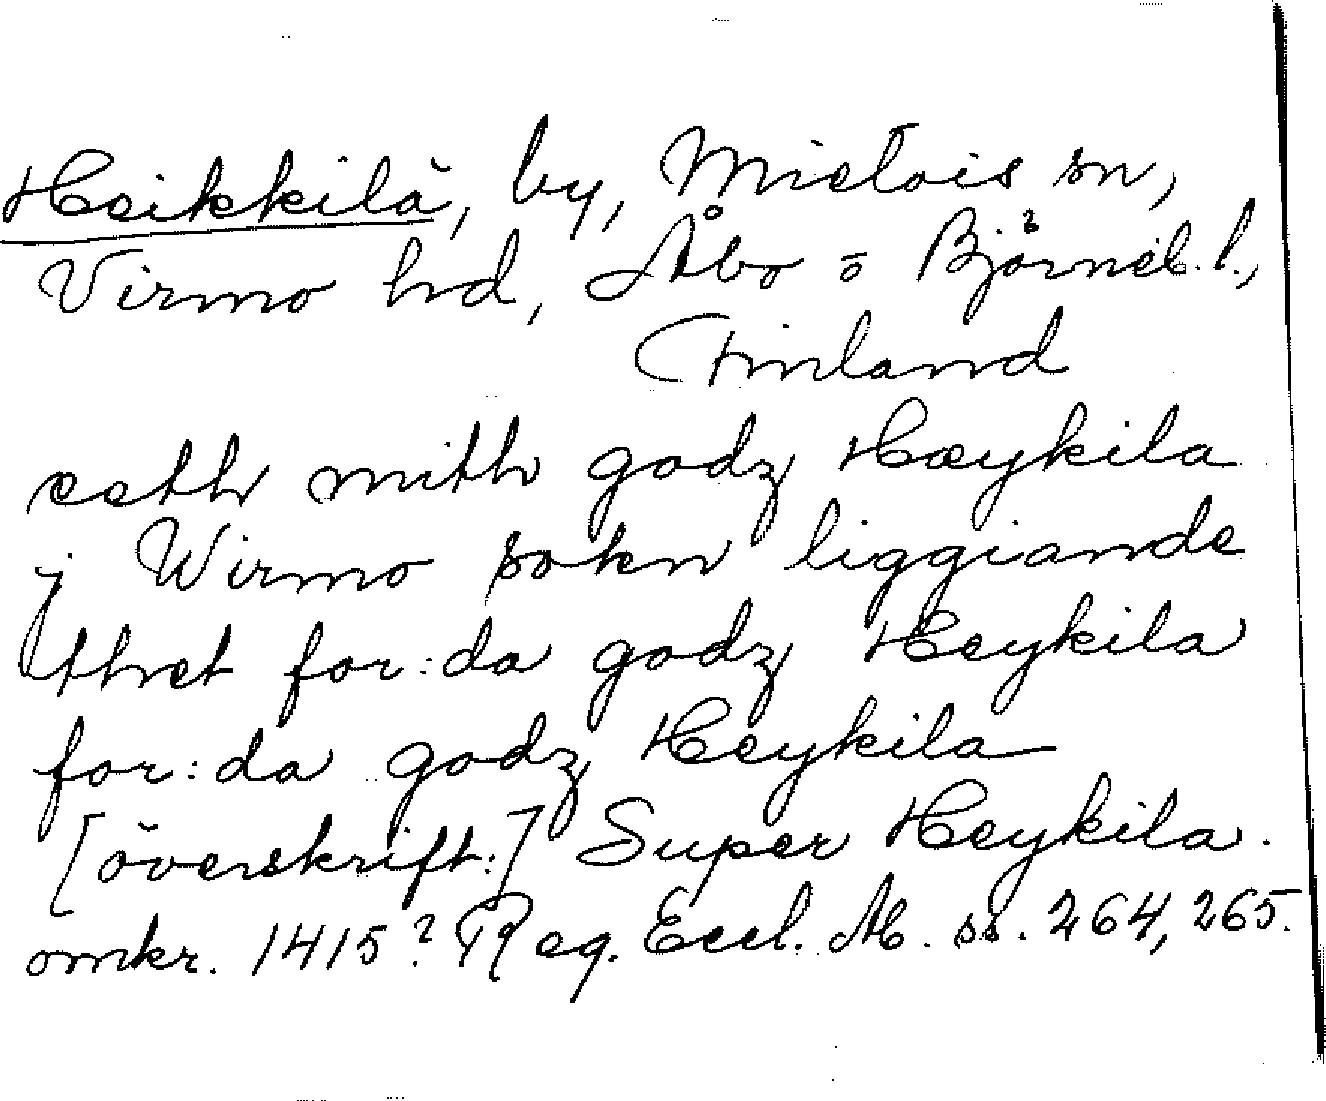 Heikkilä, by, Mietois sn,
Virmo hd, Åbo o Björneb. l.,
Finland
eeth mith godz Hæykila
j Wirmo sokn liggiande
thet for:da godz Heykila
for:da godz Heykila
[överskrift:] Super Heykila.
omkr. 1415? Reg. Eccl. Ab. ss. 264, 265.